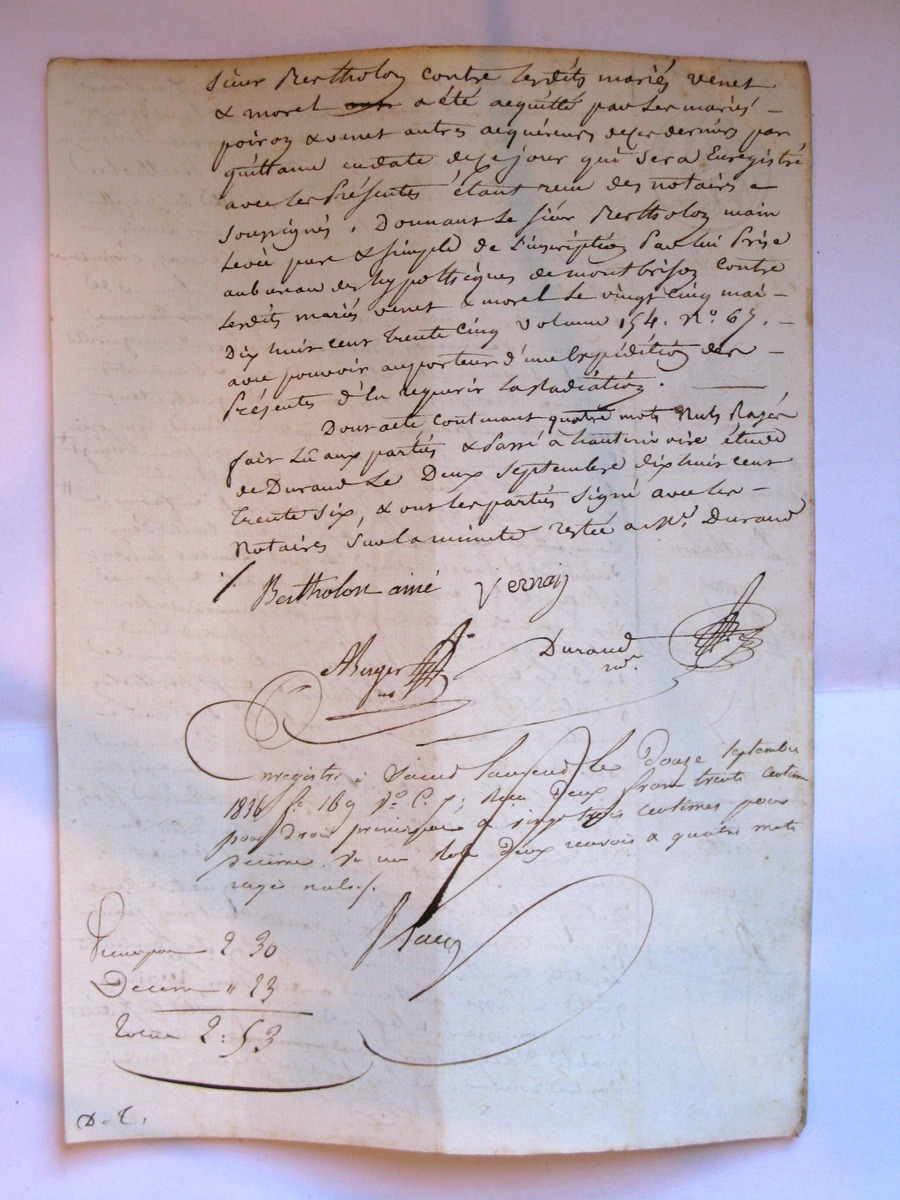 Sieur Bertholon contre lesdits mariés venet
& morel a été acquitté par les mariés -
poizon & venet autres acquéreurs de ces derniers par
quittance en date de ce jour qui sera Enregistré
avec les Présentes étant reçu des notaires
soussignés, Donnant le sieur Bertholon main
levée pure & simple de l'inscription Par lui Prise
au bureau des hypothèques de montbrison contre
lesdits mariés venet & morel le vingt cinq mai -
Dix huit cent trente cinq volume 154. N.º 65. -
avec pouvoir au porteur d'une Expédition des -
Présentes d'en requérir la Radiation.
Dont acte contenant quatre mots Nuls Rayés
fait Lû aux parties & Passé à étude
de Durand Le Deux Septembre dix huit cent
trente six, & ont les parties signé avec les -
Notaires sur la minute restée a Me. Durand
Bertholon ainé Vernay
Durand
nre.
Enregistré à Saint le Douze Septembre
1836 fo. 169 Vo. C. 5; reçu Deux francs trente centimes
pour Droit principal & vingt trois centimes pour
Décime. deux renvois & quatre mots
rayés nuls./.
Principal 2 30
Décime " 23
Total 2: 53
D. T.